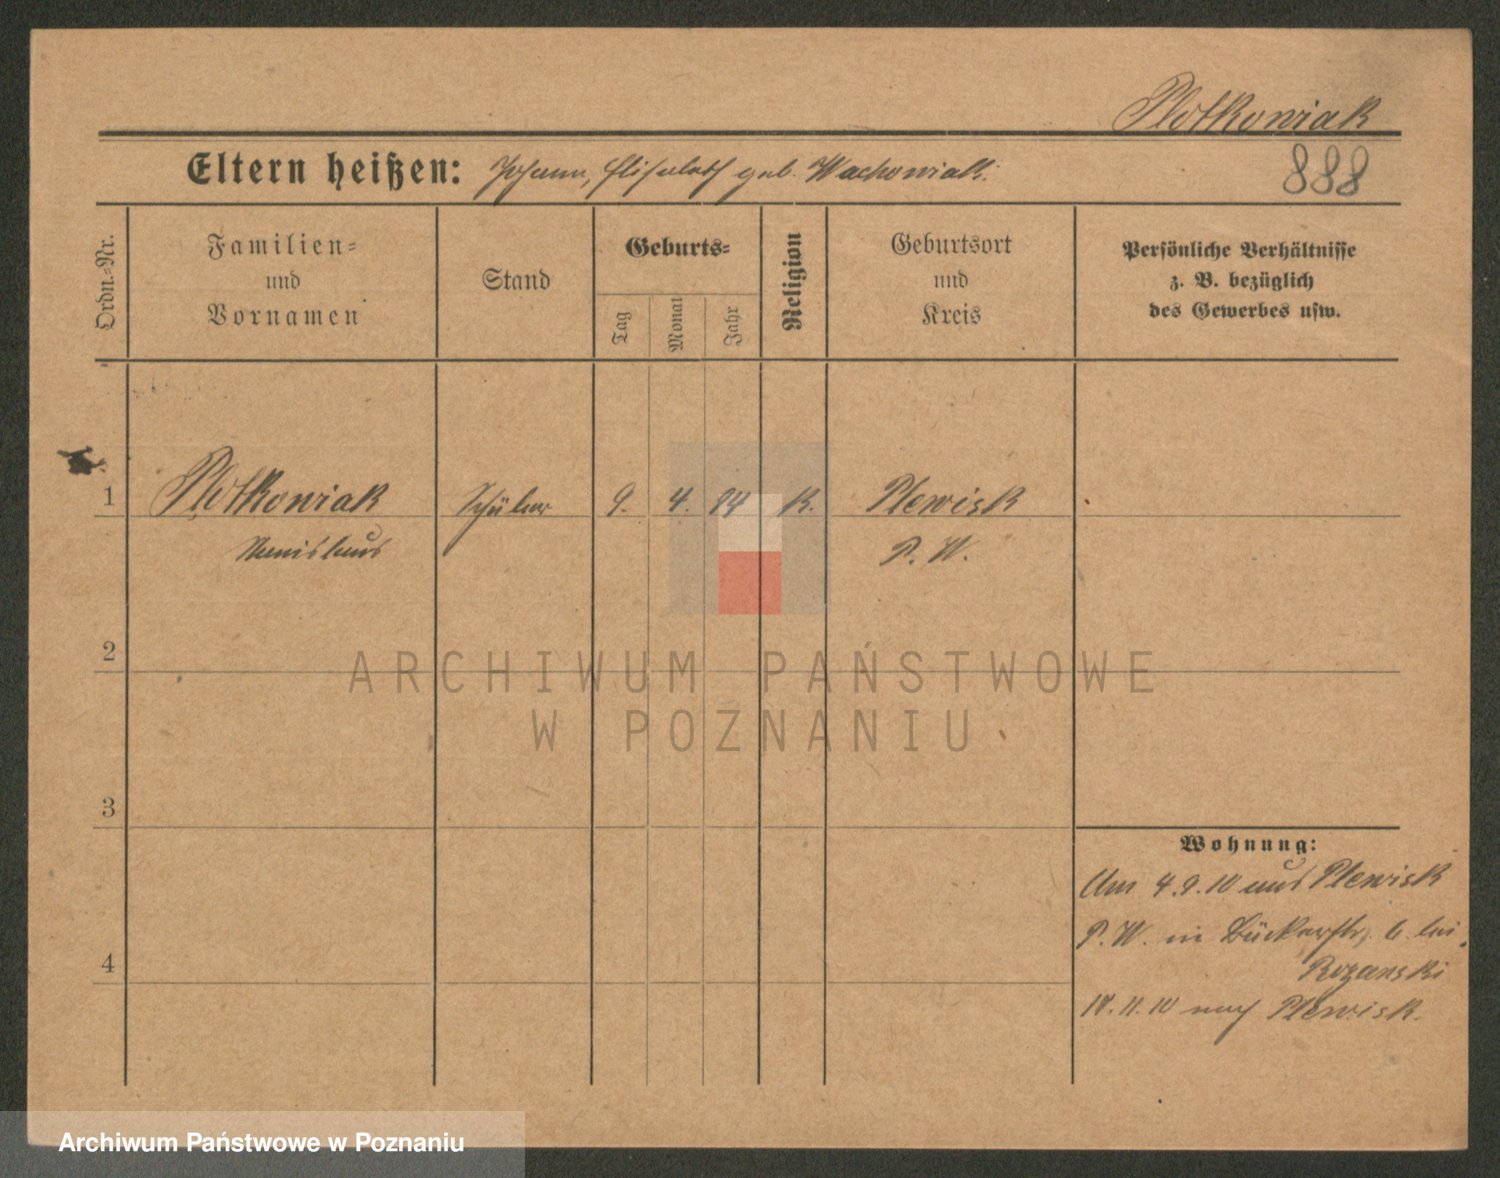 Plotkowiak
Eltern heißen: Johann, Elisabeth geb. Wachowiak.
888
Ordn.-Nr.
Familien-
und
Vornamen
Stand
Geburts-
Tag
Monat
Jahr
Religion
Geburtsort
und
Kreis
Persönliche Verhältnisse
z. B. bezüglich
des Gewerbes usw.
1 Plotkowiak Schüler 9. 4. 94 K. Plewisk
Stanislaus P. W.
2
3
4
Wohnung:
Um 4.9.10 aus Plewisk
P. W. in Bäckerstr. 6 bei
Rozanski
18.11.10 nach Plewisk.
ARCHIWUM PAŃSTWOWE
W POZNANIU
Archiwum Państwowe w Poznaniu